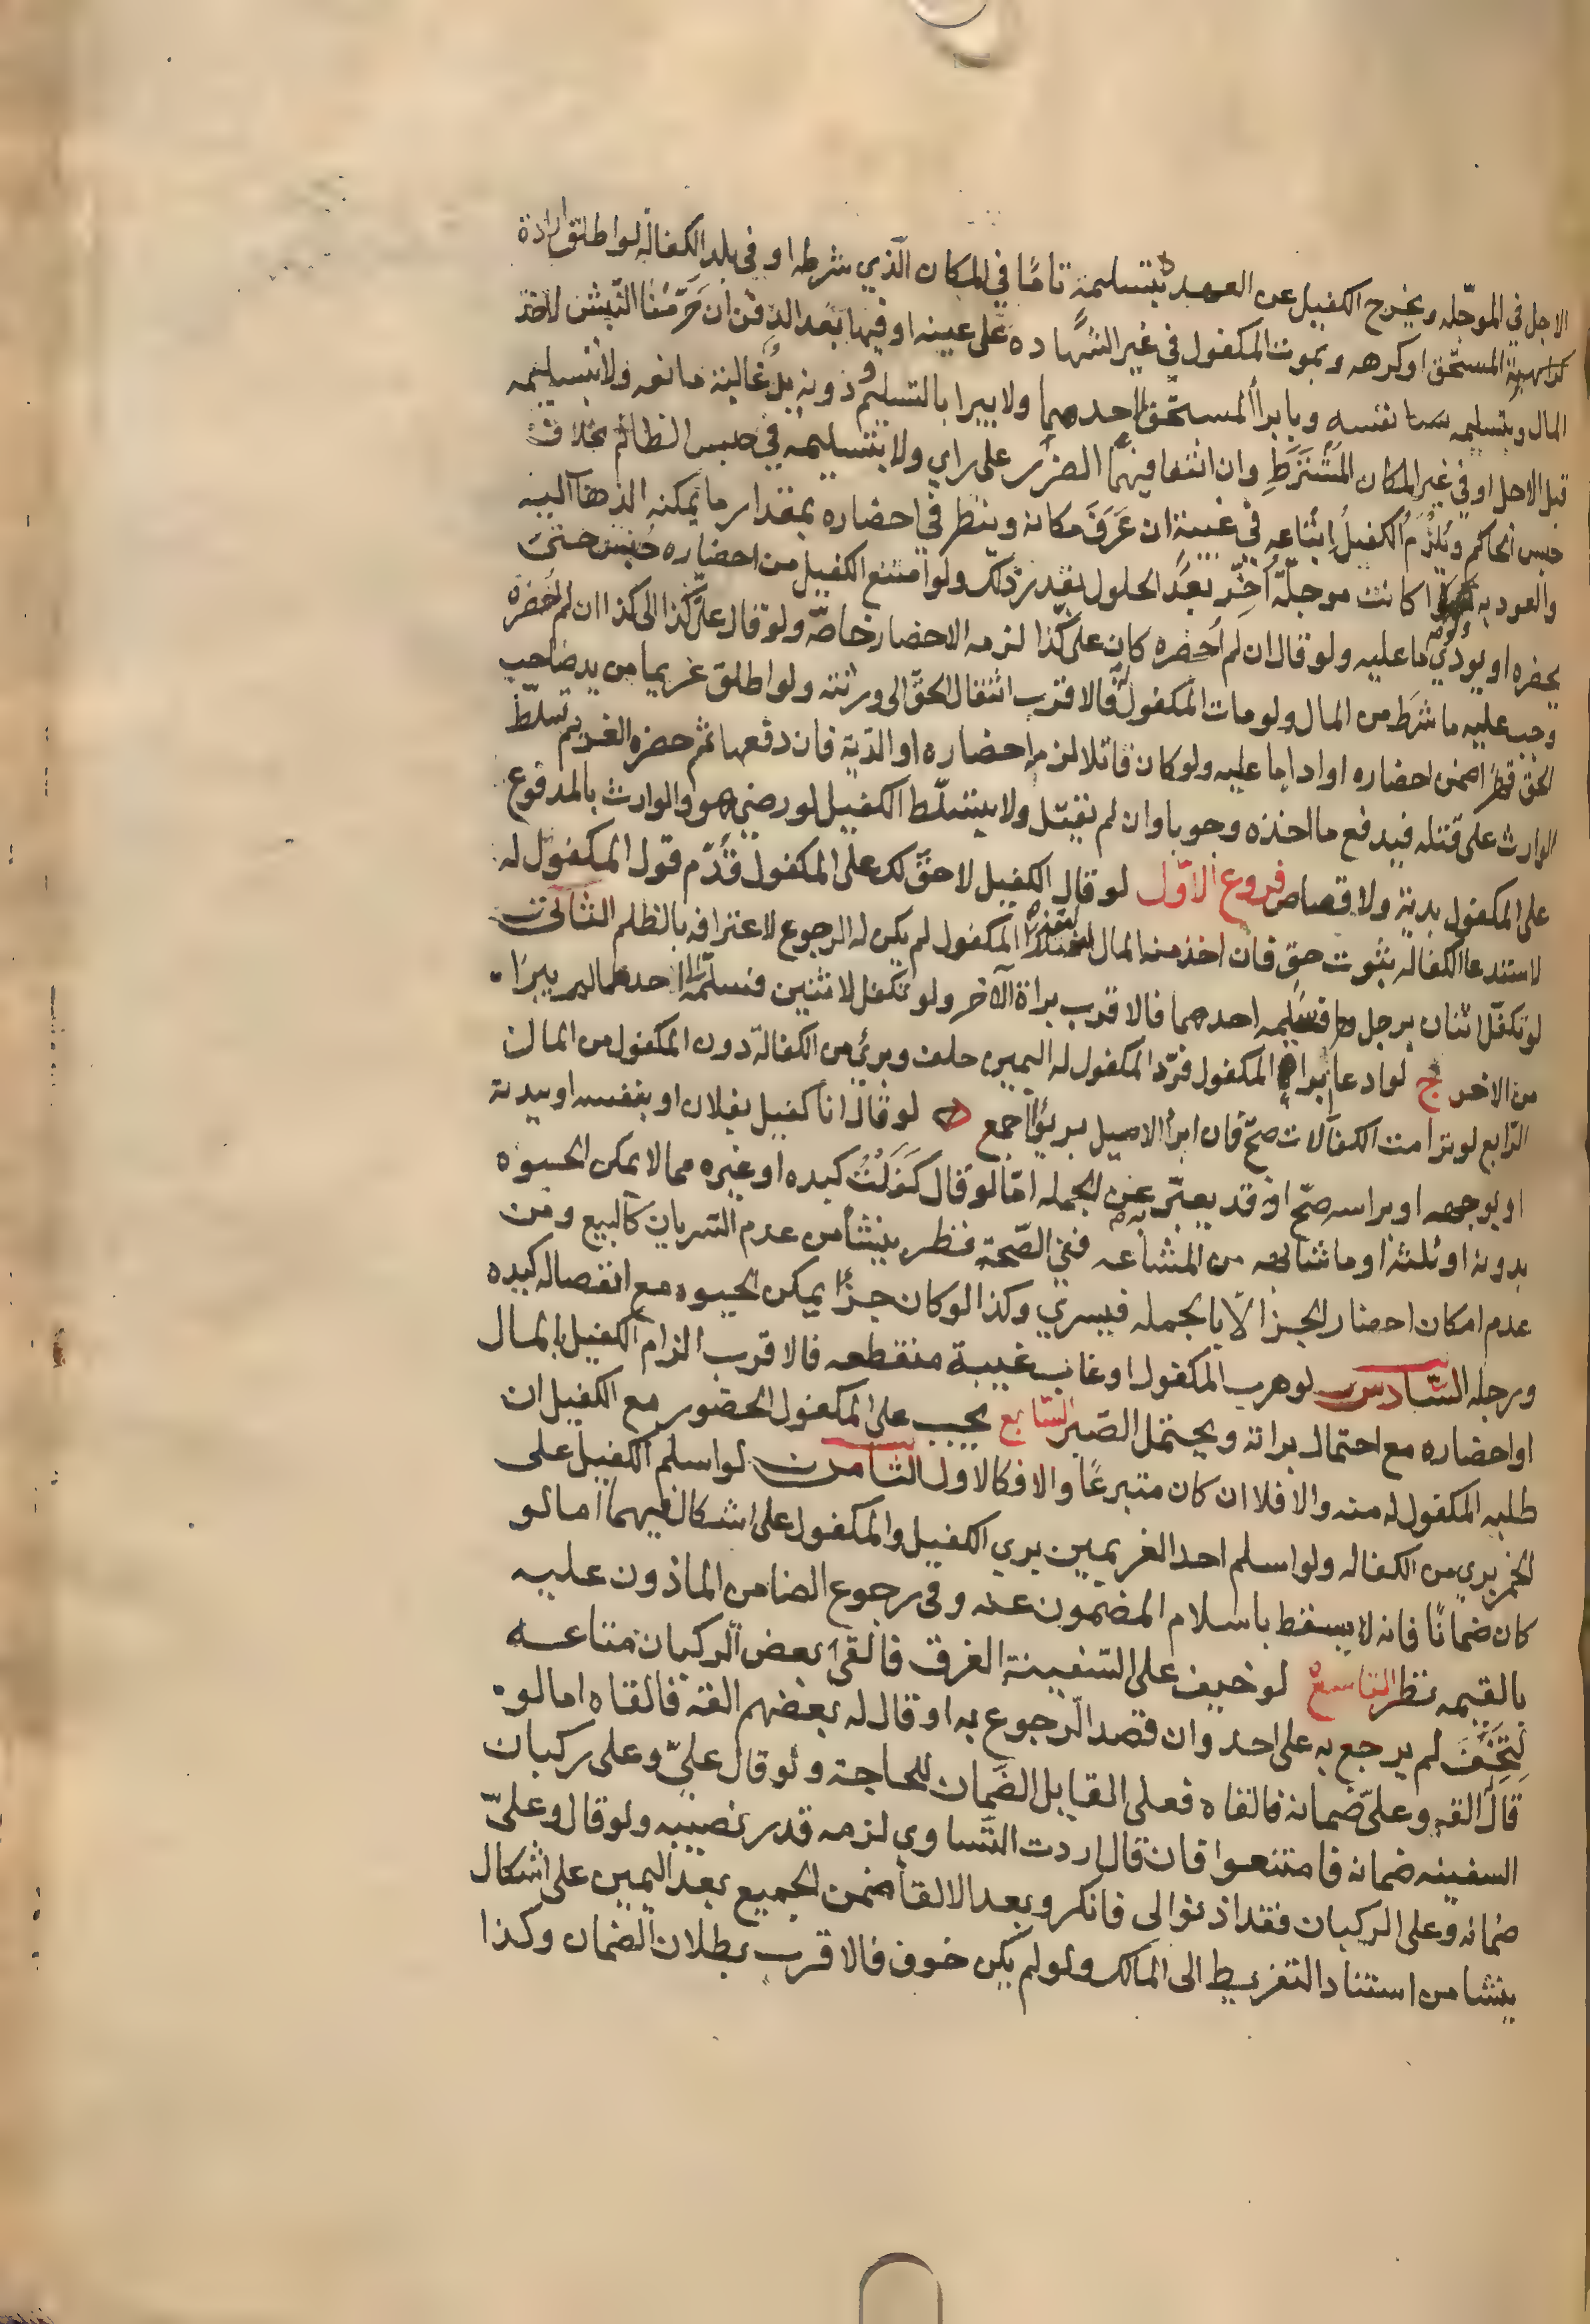 الاجل في الموجّله ويخرج الكفيل عن العهده بتسليمه تامًا في المكان الّذي شرطه او في بلد الكفاله لو اطلق ارادة
كراهية المستحق او كرهه وبموت المكفول في غير الشهاده على عينه او فيها بعد الدفن ان حَرَّمنا النبش لاخذ
المال وبتسليمه نفسه وبابرأ المستحق لاحدهما ولا يبرا بالتسليم ودونه يدٌ غالبة مانعه ولا بتسليمه
قبل الاجل او في غير المكان المشترطِ وان انتفا فيهما الضرر على راي ولا بتسليمه في حبس الظالم بخلاف
حبس الحاكم ويُلزَمُ الكفيلُ اتباعه في غيبته ان عَرَفَ مكانه وينظر في احضاره بمقدار ما يمكنه الذهاب اليه
والعود به كانت موجلّة أُخِّر بعد الحلول بقدر ذلك ولو امتنع الكفيل من احضاره حُبِسَ حتى
يحضره او يودّي ما عليه ولو قال ان لم احضره كان على كذا لزمه الاحضار خاصّه ولو قال علىّ كذا الى كذا ان لم احضره
وجب عليه ما شرَط من المال ولو مات المكفول لَهُ فالاقرب انتقال الحق الى ورثته ولو اطلق غريما من يد صاحب
الحق قهرًا ضمن احضاره او ادا ما عليه ولو كان قاتلا لزمه احضاره او الدّية فان دفعها ثم حضر الغريم تسلّط
الوارث على قتله فيدفع ما اخذه وجوبا وان لم نقتل ولا يتسلّط الكفيل لو رضي هو والوارث بالمدفوع
على المكفول بديه ولا قصاص فروع الاوّل لو قال الكفيل لا حقّ لك على المكفول قُدّم قول المكفول له
لاستدعا الكفاله بثبوت حقٍ فان اخذ منه المال لتعذره المكفول لم يكن له الرجوع لاعترافه بالظلم الثانى
لو تكفّل اثنان برجل فسلمه احدهما فالاقرب براة الآخر ولو تكفل لاثنين فسلّمه الى احدهما لم يبرا
من الاخر ج لو ادعا ابرا المكفول فردّ المكفول له اليمين حلف وبرئ من الكفالة دون المكفول من المال
الرّابع لو ترامت الكفآلات صحّ فان ابرأ الاصيل برئوا اجمع ه لو قال انا كفيل بفلان او بنفسه او ببدنه
او بوجهه او براسه صحّ اذ قد يعبّر به عن الجمله امّا لو قال كَفَلْتُ كبده او غيره مما لا يمكن الحيوه
بدونه او ثلثه او ما شابهه من المشاعه ففي الصّحة نظر ينشأ من عدم السّريان كالبيع ومن
عدم امكان احضار الجزء الّا بالجمله فيسري وكذا لو كان جزءًا يمكن الحيوه مع انفصاله كيده
ورجله السّادس لو هرب المكفول او غاب غيبة منقطعه فالاقرب الزام الكفيل بالمال
او احضاره مع احتمال براته ويحتمل الصّبر السّابع يجب على المكفول الحضور مع الكفيل ان
طلبه المكفول له منه والا فلا ان كان متبرعًا والا فكالاول الثّامن لو اسلم الكفيل على
الخمر بري من الكفاله ولو اسلم احد الغريمين بري الكفيل والمكفول على اشكال فيهما اما لو
كان ضمانًا فانه لا يسقط باسلام المضمون عنه وفي رجوع الضامن الماذون عليه
بالقيمه نظر التاسع لو خيف على السّفينة الغرق فالقى بعض الركبان متاعه
لِتَخِفّ لم يرجع به على احد وان قصد الرّجوع به او قال له بعضهم القه فالقاه اما لو
قال القه وعلىّ ضمانه فالقاه فعلى القايل الضَمان للحاجة ولو قال علىّ وعلى ركبان
السفينه ضمانه فامتنعوا فان قال اردت التّساوي لزمه قدر نصيبه ولو قال وعلىّ
ضمانه وعلى الركبان فقد اذنوا لى فانكروا بعد الالقا ضمن الجميع بعد اليمين على اشكال
ينشا من استناد التفريط الى المالك ولو لم يكن خوف فالاقرب بطلان الضمان وكذا